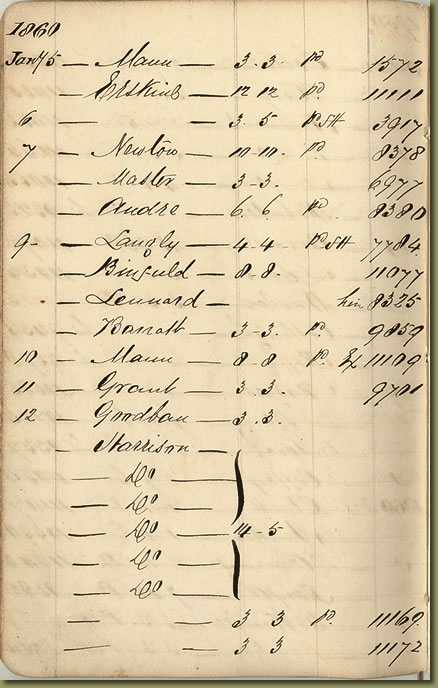 1860
Jany 5 — Mann — 3 . 3 . pd 1572
— Erskine — 12 12 pd. 11111
6 — — 3 . 5 Pd SH 3917
7 — Newton — 10-10- pd 8378
— Master — 3 - 3 . 6977
— Andre — 6 . 6 . pd 8380
9 - — Langly — 4 - 4 - Pd SH 7784
— Binfield — 8 - 8 - 11077
— Lennard — 8325
— Barratt — 3 - 3 . pd. 9859
10 — Mann — 8 - 8 pd. Ex 11109
11 — Grant — 3 . 3 . 9701
12 — Goodban — 3 . 3 .
— Harrison —
— Do —
— Do —
— Do — 14 - 5
— Do —
— Do —
— — 3 3 pd. 11169
— — 3 3 11172